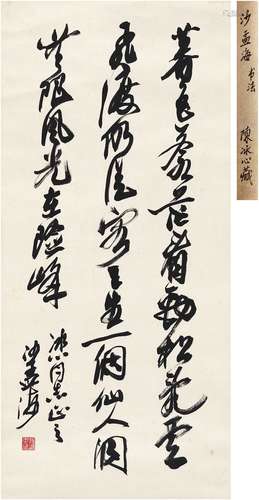 暮色苍茫看劲松乱云
飞渡仍从容天生一个仙人洞
无限风光在险峰
冰心同志正之
沙孟海
沙孟海 书法
陈冰心藏